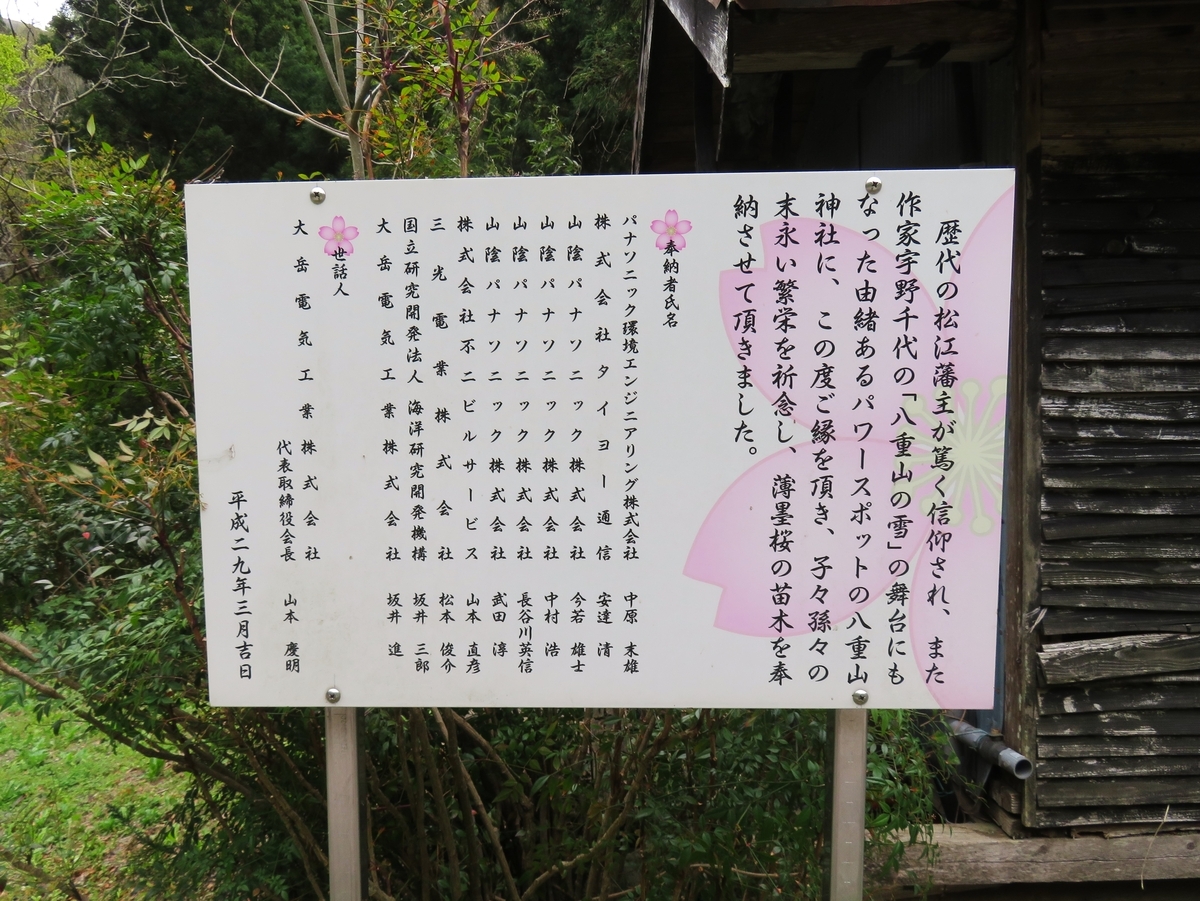 歴代の松江藩主が篤く信仰され、また
作家宇野千代の「八重山の雪」の舞台にも
なった由緒あるパワースポットの八重山
神社に、この度ご縁を頂き、子々孫々の
末永い繁栄を祈念し、薄墨桜の苗木を奉
納させて頂きました。
奉納者氏名
パナソニック環境エンジニアリング株式会社 中原 末雄
株式会社タイヨー通信 安達 清
山陰パナソニック株式会社 今若 雄士
山陰パナソニック株式会社 中村 浩
山陰パナソニック株式会社 長谷川英信
山陰パナソニック株式会社 武田 淳
株式会社不二ビルサービス 山本 直彦
三光電業株式会社 松本 俊介
国立研究開発法人 海洋研究開発機構 坂井 三郎
大岳電気工業株式会社 坂井 進
世話人
大岳電気工業株式会社
代表取締役会長 山本 慶明
平成二九年三月吉日